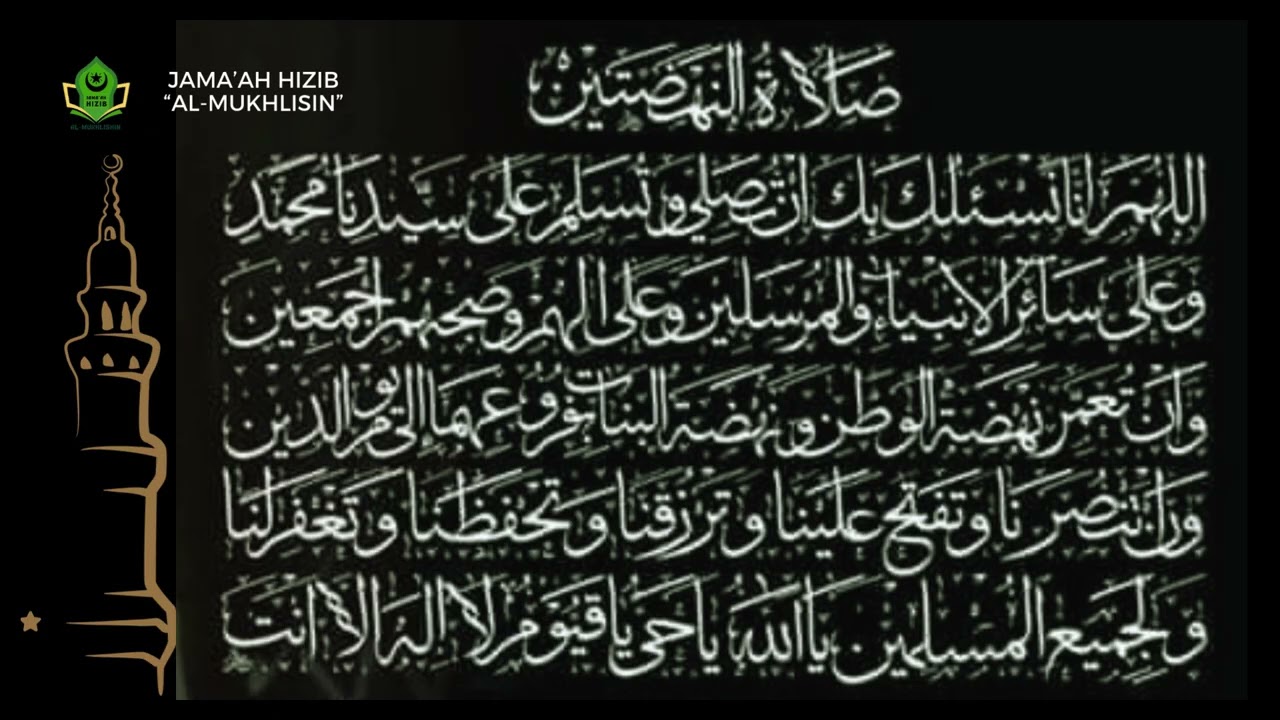 JAMA'AH HIZIB
"AL-MUKHLISIN"
JAMA'AH
HIZIB
AL-MUKHLISHIN
صَلَاةُ النَّهْضَتَيْنِ
اَللّٰهُمَّ اِنَّا نَسْئَلُكَ بِكَ اَنْ تُصَلِّيَ وَتُسَلِّمَ عَلَى سَيِّدِنَا مُحَمَّدٍ
وَعَلَى سَائِرِ الْاَنْبِيَاءِ وَالْمُرْسَلِيْنَ وَعَلَى اٰلِهِمْ وَصَحْبِهِمْ اَجْمَعِيْنَ
وَاَنْ تُعَمِّرَ نَهْضَةَ الْوَطَنِ وَنَهْضَةَ الْبَنَاتِ وَفُرُوْعَهُمَا اِلَى يَوْمِ الدِّيْنِ
وَاَنْ تَنْصُرَنَا وَتَفْتَحَ عَلَيْنَا وَتَرْزُقَنَا وَتَحْفَظَنَا وَتَغْفِرَ لَنَا
وَلِجَمِيْعِ الْمُسْلِمِيْنَ يَا اَللهُ يَا حَيُّ يَا قَيُّوْمُ لَا اِلٰهَ اِلَّا اَنْتَ